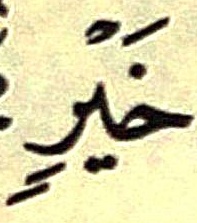 خَيْرٍ